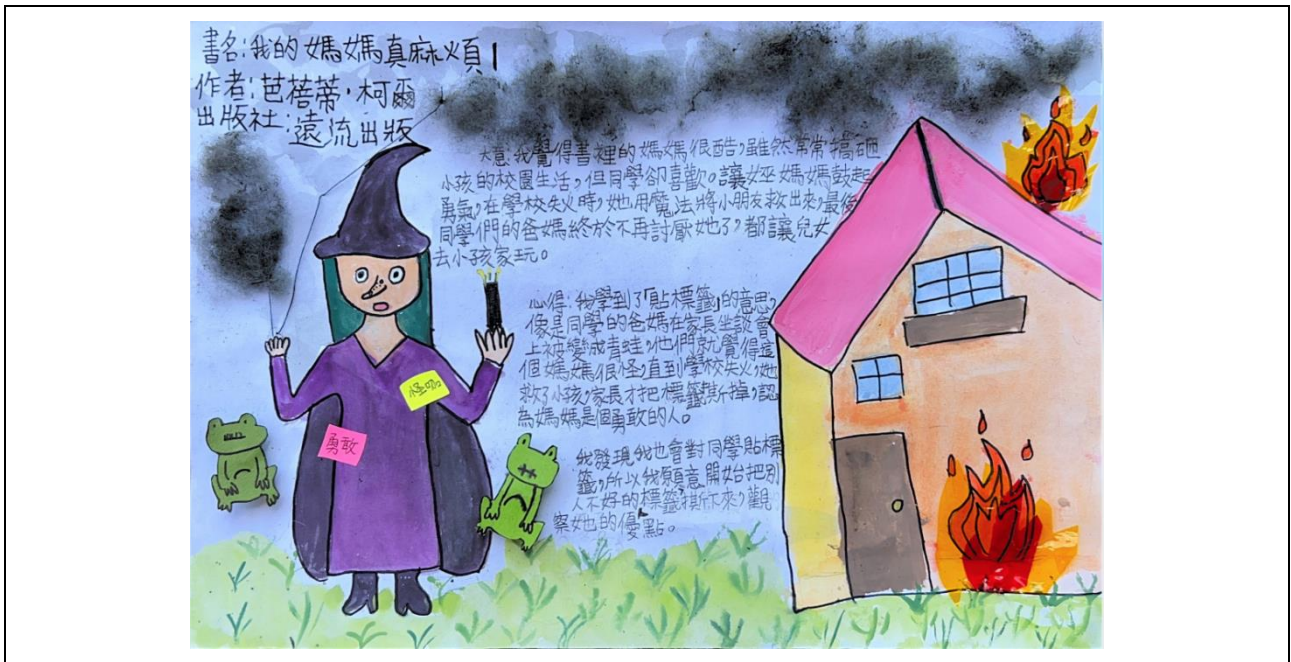 書名:我的媽媽真麻煩!
作者:芭蓓蒂·柯爾
出版社:遠流出版
大意:我覺得書裡的媽媽很酷,雖然常常搞砸
小孩的校園生活,但同學卻喜歡。讓女巫媽媽鼓起
勇氣,在學校失火時,她用魔法將小朋友救出來,最後
同學們的爸媽終於不再討厭她了,都讓兒女
去小孩家玩。
心得:我學到了「貼標籤」的意思,
像是同學的爸媽在家長坐談會
上被變成青蛙,他們就覺得這
個媽媽很怪,直到學校失火,她
救了小孩,家長才把標籤撕掉,認
為媽媽是個勇敢的人。
我發現我也會對同學貼標
籤,所以我願意開始把別
人不好的標籤撕下來,觀
察她的優點。
怪咖
勇敢